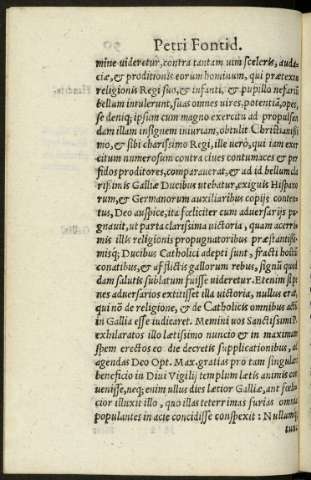 Petri Fontid.
mine uideretur, contra tantam uim sceleris, auda-
ciæ, & proditionis eorum hominum, qui prætextu
religionis Regi suo, & infanti, & pupillo nefariũ
bellum intulerunt, suas omnes uires, potentiã, opes,
se deniq; ipsum cum magno exercitu ad propulsan
dam illam insignem iniuriam, obtulit Christianissi
mo, & sibi charissimo Regi, ille uerò, qui iam exer
citum numerosum contra ciues contumaces & per
fidos proditores, comparauerat, & ad id bellum cla
rissimis Galliæ Ducibus utebatur, exiguis Hispano
rum, & Germanorum auxiliaribus copijs conten-
tus, Deo auspice, ita fœliciter cum aduersarijs pu-
gnauit, ut parta clarissima uictoria, quam acerri-
mis illis religionis propugnatoribus præstantissi-
misq; Ducibus Catholici adepti sunt, fracti hostiũ
conatibus, & afflictis gallorum rebus, signũ quod
dam salutis sublatum fuisse uideretur. Etenim si pe
nes aduersarios extitisset illa uictoria, nullus erat,
qui nõ de religione, & de Catholicis omnibus actũ
in Gallia esse iudicaret. Memini uos Sanctissimi P.
exhilaratos illo lætissimo nuncio & in maximam
spem erectos eo die decretis supplicationibus, ad
agendas Deo Opt. Max. gratias pro tam singulari
beneficio in Diui Vigilij templum lætis animis con
uenisse, neq; enim ullus dies lætior Galliæ, aut fœli-
cior illuxit illo, quo illas teterrimas furias omnia
populantes in acie concidisse conspexit: Nullumq;
tur: